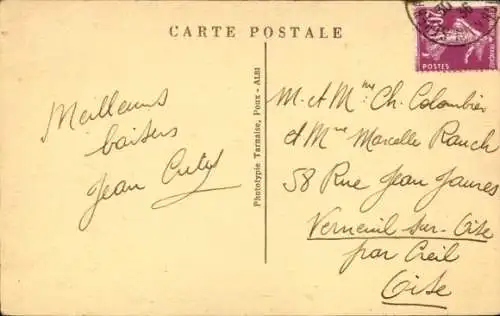 CARTE POSTALE
Meilleurs
baisers
Jean
Phototypie Tarnaise, Poux - ALBI
POSTES
M. et Mme Ch. Colombier
et Mme Marcelle Rauch
58 Rue Jean Jaures
Verneuil-sur-Oise
par Creil
Oise